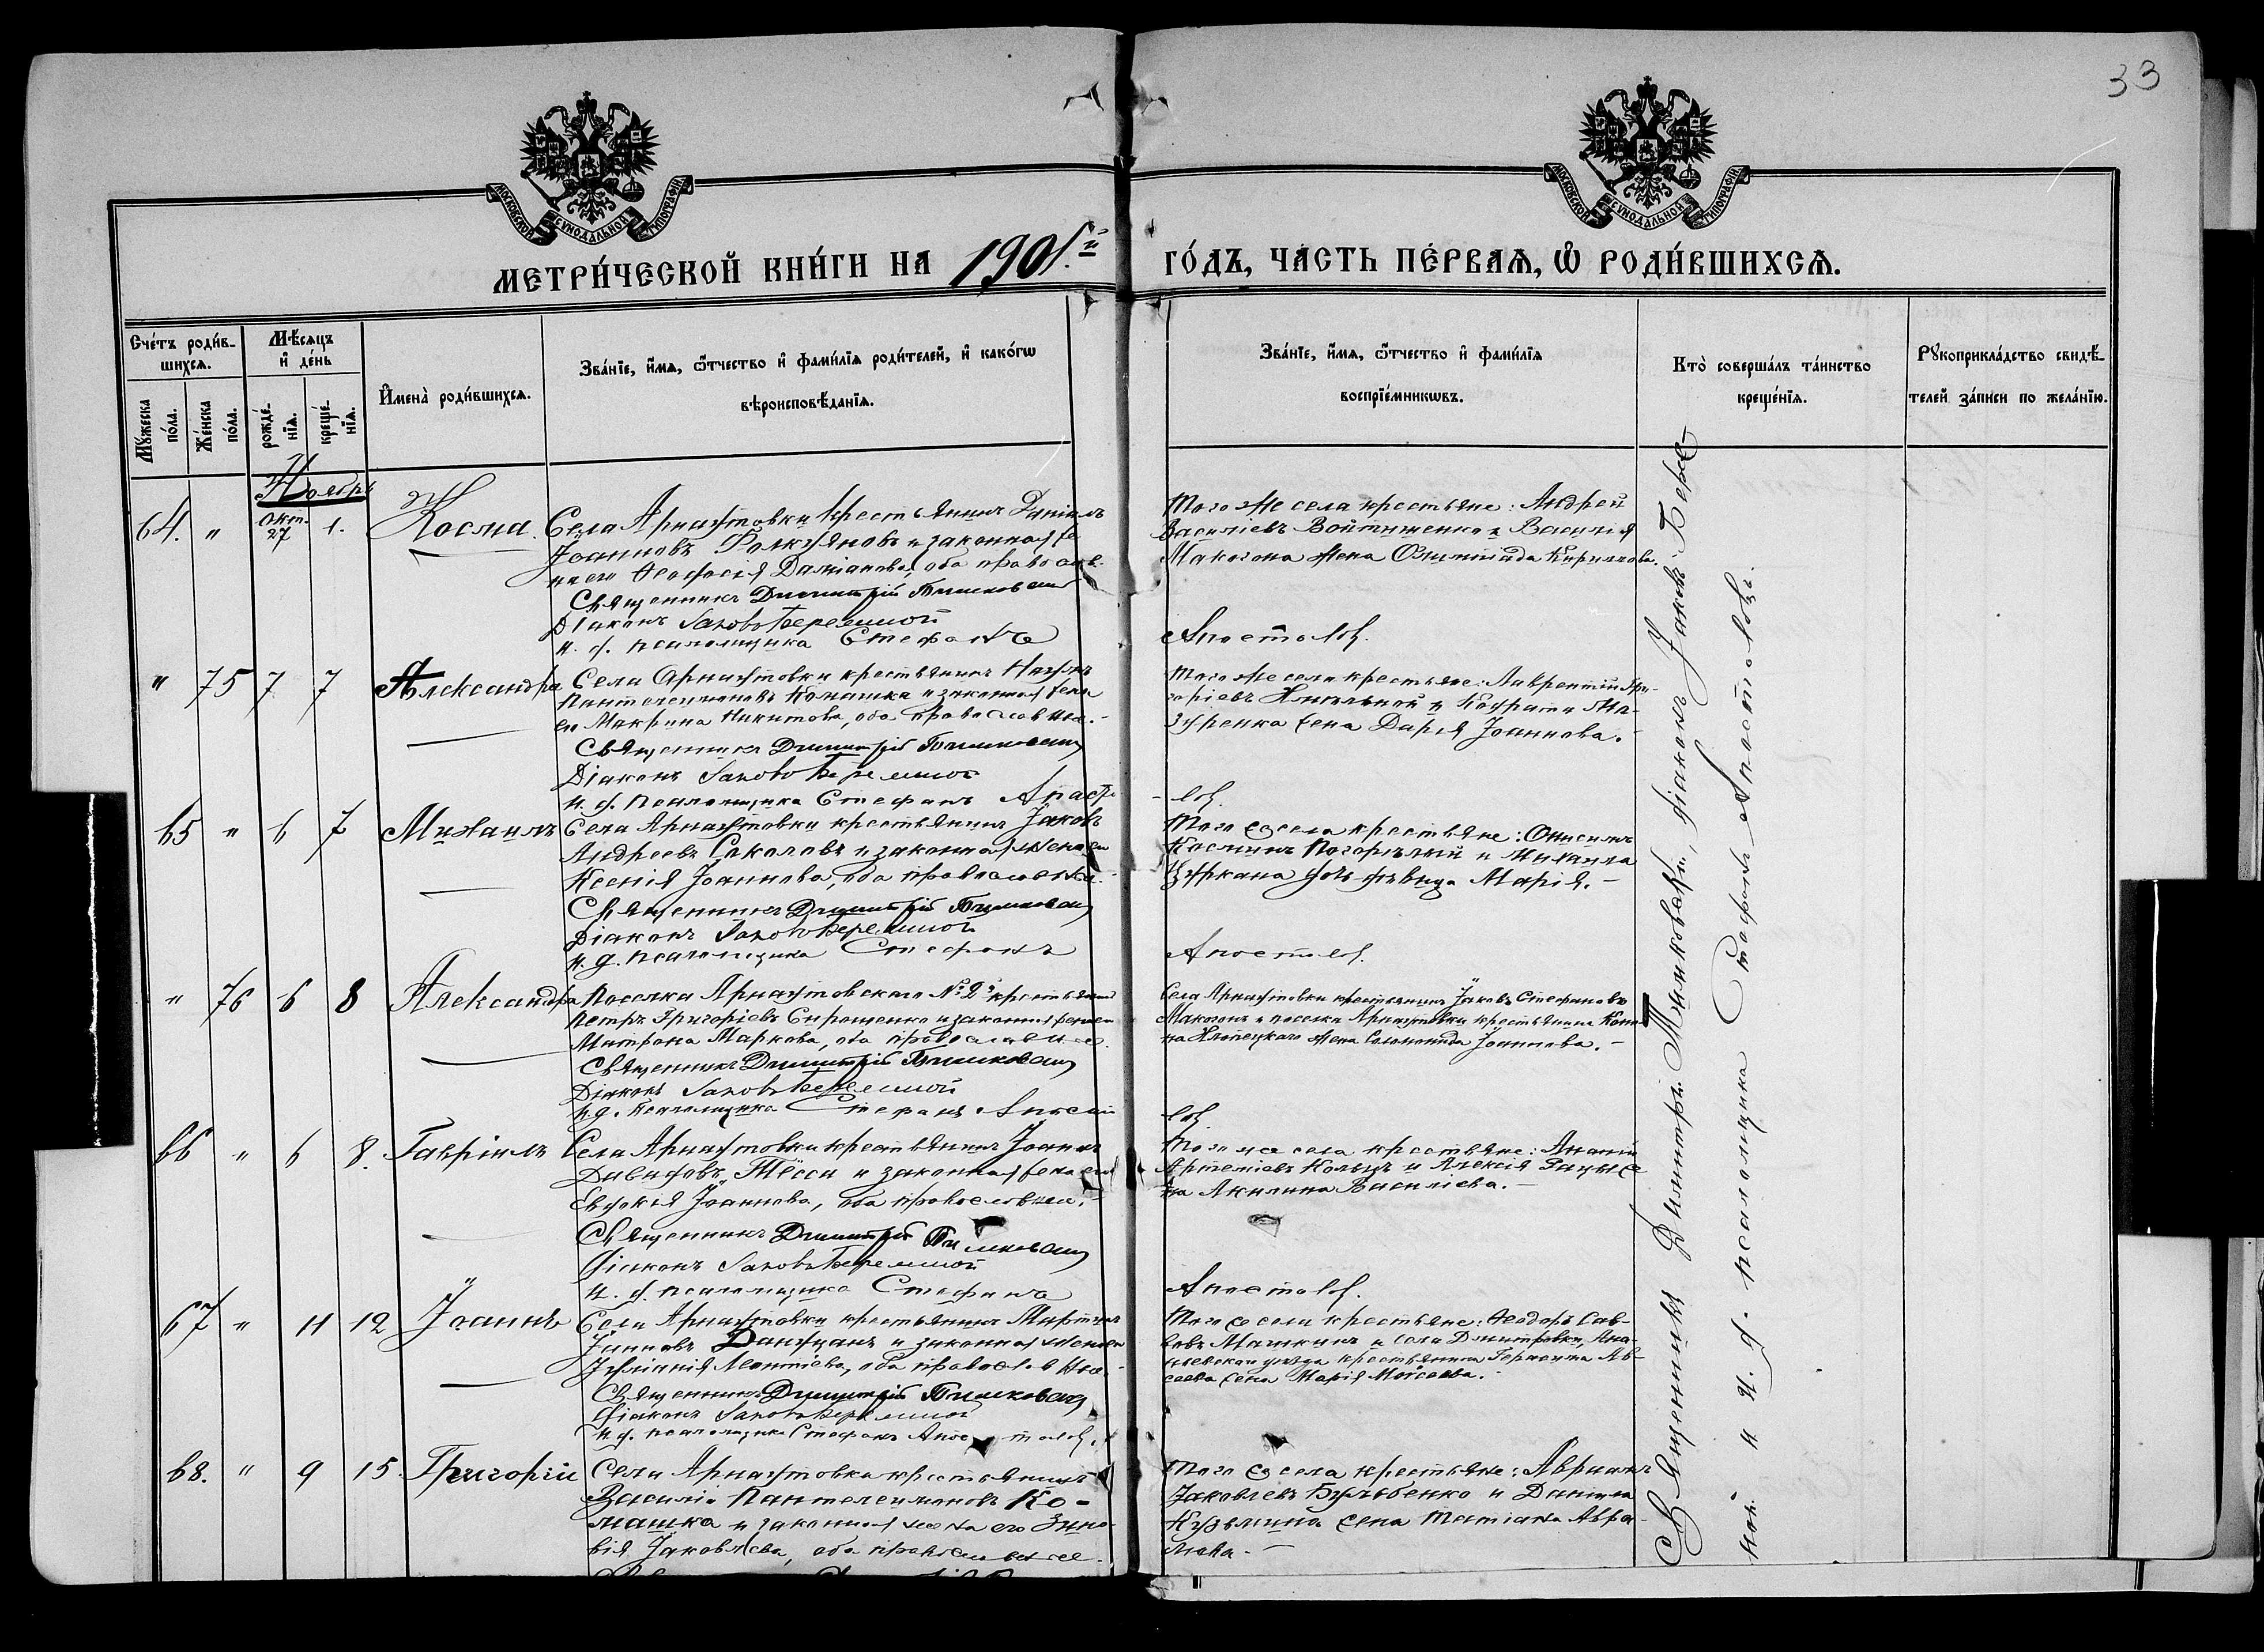 33
МОСКОВСКОЙ СѴНОДАЛЬНОЙ ТИПОГРАФІИ
МОСКОВСКОЙ СѴНОДАЛЬНОЙ ТИПОГРАФІИ
МЕТРИ́ЧЕСКОЙ КНИ́ГИ НА 1901.й ГО́ДЪ, ЧА́СТЬ ПЕ́РВАѦ, Ѡ҆ РОДИ́ВШИХСѦ.
Счетъ роди́в-
шихсѧ.
Мѣ́сѧцъ
и҆ де́нь
Мꙋ́жеска по́ла.
Же́нска по́ла.
рожде́-нїѧ.
креще́-нїѧ.
И҆мена̀ роди́вшихсѧ.
Зва́нїе, и҆́мѧ, ѻ҆́тчество и҆ фами́лїѧ роди́телей, и҆ како́гѡ
вѣроисповѣ́данїѧ.
Зва́нїе, и҆́мѧ, ѻ҆́тчество и҆ фами́лїѧ
воспрїе́мникѡвъ.
Кто̀ соверша́лъ та́инство
креще́нїѧ.
Рꙋкоприкла́дство свидѣ́-
телей за́писи по жела́нїю.
Ноябрь
64. " Окт. 27 1. Косма.
Села Арнаутовки крестьянинъ Даніилъ
Іоанновъ и законная же
на его Ѳеодосія Даміанова, оба правосл.
Священникъ Димитрій
Діаконъ Іаковъ Бережной
и. д. псаломщика Стефанъ Апостоловъ.
Того же села крестьяне: Андрей
Василіевъ Войтишенко и Василія
Макогона жена Олимпіада Кириллова.
" 75 7 7 Александра
Села Арнаутовки крестьянинъ Наумъ
Пантелеимоновъ Комашка и законная жена
его Макрина Никитова, оба православные.
Священникъ Димитрій
Діаконъ Іаковъ Бережной
и. д. псаломщика Стефанъ Апостоловъ.
Того же села крестьяне: Лаврентій Гри-
горіевъ и Ма-
зуренка жена Дарія Іоаннова.
65 " 6 7 Михаилъ
Села Арнаутовки крестьянинъ Іаковъ
Андреевъ Соколовъ и законная жена его
Ксенія Іоаннова, оба православные.
Священникъ Димитрій
Діаконъ Іаковъ Бережной
и. д. псаломщика Стефанъ Апостоловъ.
Того же села крестьяне: Онисимъ
Косминъ Погорѣлый и Михаила
Цуркана дочь дѣвица Марія.
" 76 6 8 Александра
Поселка Арнаутовскаго № 2й крестьянинъ
Петръ Григоріевъ Сирошенко и законная жена его
Матрона Маркова, оба православные.
Священникъ Димитрій
Діаконъ Іаковъ Бережной
и. д. псаломщика Стефанъ Апостоловъ.
Села Арнаутовки крестьянинъ Іаковъ Стефановъ
Макогонъ и поселка Арнаутовки крестьянина
жена Соломонида Іоаннова.
66 " 6 8. Гавріилъ
Села Арнаутовки крестьянинъ Іоаннъ
Давидовъ Тёсса и законная жена его
Евдокія Іоаннова, оба православные.
Священникъ Димитрій
Діаконъ Іаковъ Бережной
и. д. псаломщика Стефанъ Апостоловъ.
Того же села крестьяне: Ананій
Артеміевъ и Алексія же
на Акилина Василіева.
67 " 11 12 Іоаннъ
Села Арнаутовки крестьянинъ
Данжанъ и законная жена его
Іуліанія Леонтіева, оба православные.
Священникъ Димитрій
Діаконъ Іаковъ Бережной
и. д. псаломщика Стефанъ Апостоловъ.
Того же села крестьяне: Ѳеодоръ Сав-
вовъ Машкинъ и села Дмитровки, Ана-
ньевскаго уѣзда крестьянина Герасима Ав-
сеева жена Марія Моисеева.
68. " 9 15. Григорій
Села Арнаутовки крестьянинъ
Василій Пантелеимоновъ Ко-
машка и законная жена его Зино-
вія Іаковлева, оба православные.
Того же села крестьяне: Авраамъ
Іаковлевъ Бульбенко и Даніила
Кузьмина жена Татіана Авра-
мова.
Священникъ Димитрій діаконъ Іаковъ Береж-
ной и и. д. псаломщика Стефанъ Апостоловъ.